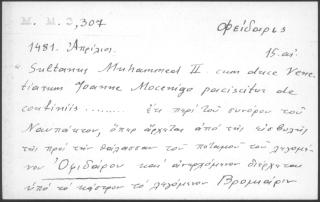 M. M. 3,307
Οφείδαρις
1481. Ἀπρίλιος. 15. αἰ.
"Sultanus Muhammed II. cum duce Vene
tiarum Joanne Mocenigo paciscitur de
confiniis ........ ἔτι περὶ τοῦ συνόρου τοῦ
Ναυπάκτου, ὅπερ ἄρχεται ἀπὸ τῆς εἰσβολῆς
τῆς πρὸς τὴν θάλασσαν τοῦ ποταμοῦ τοῦ λεγομέ
νου Ὀφιδάρου καὶ ἀνερχόμενον διέρχεται
ὑπὸ τὸ κάστρον τὸ λεγόμενον Βρομιάριν